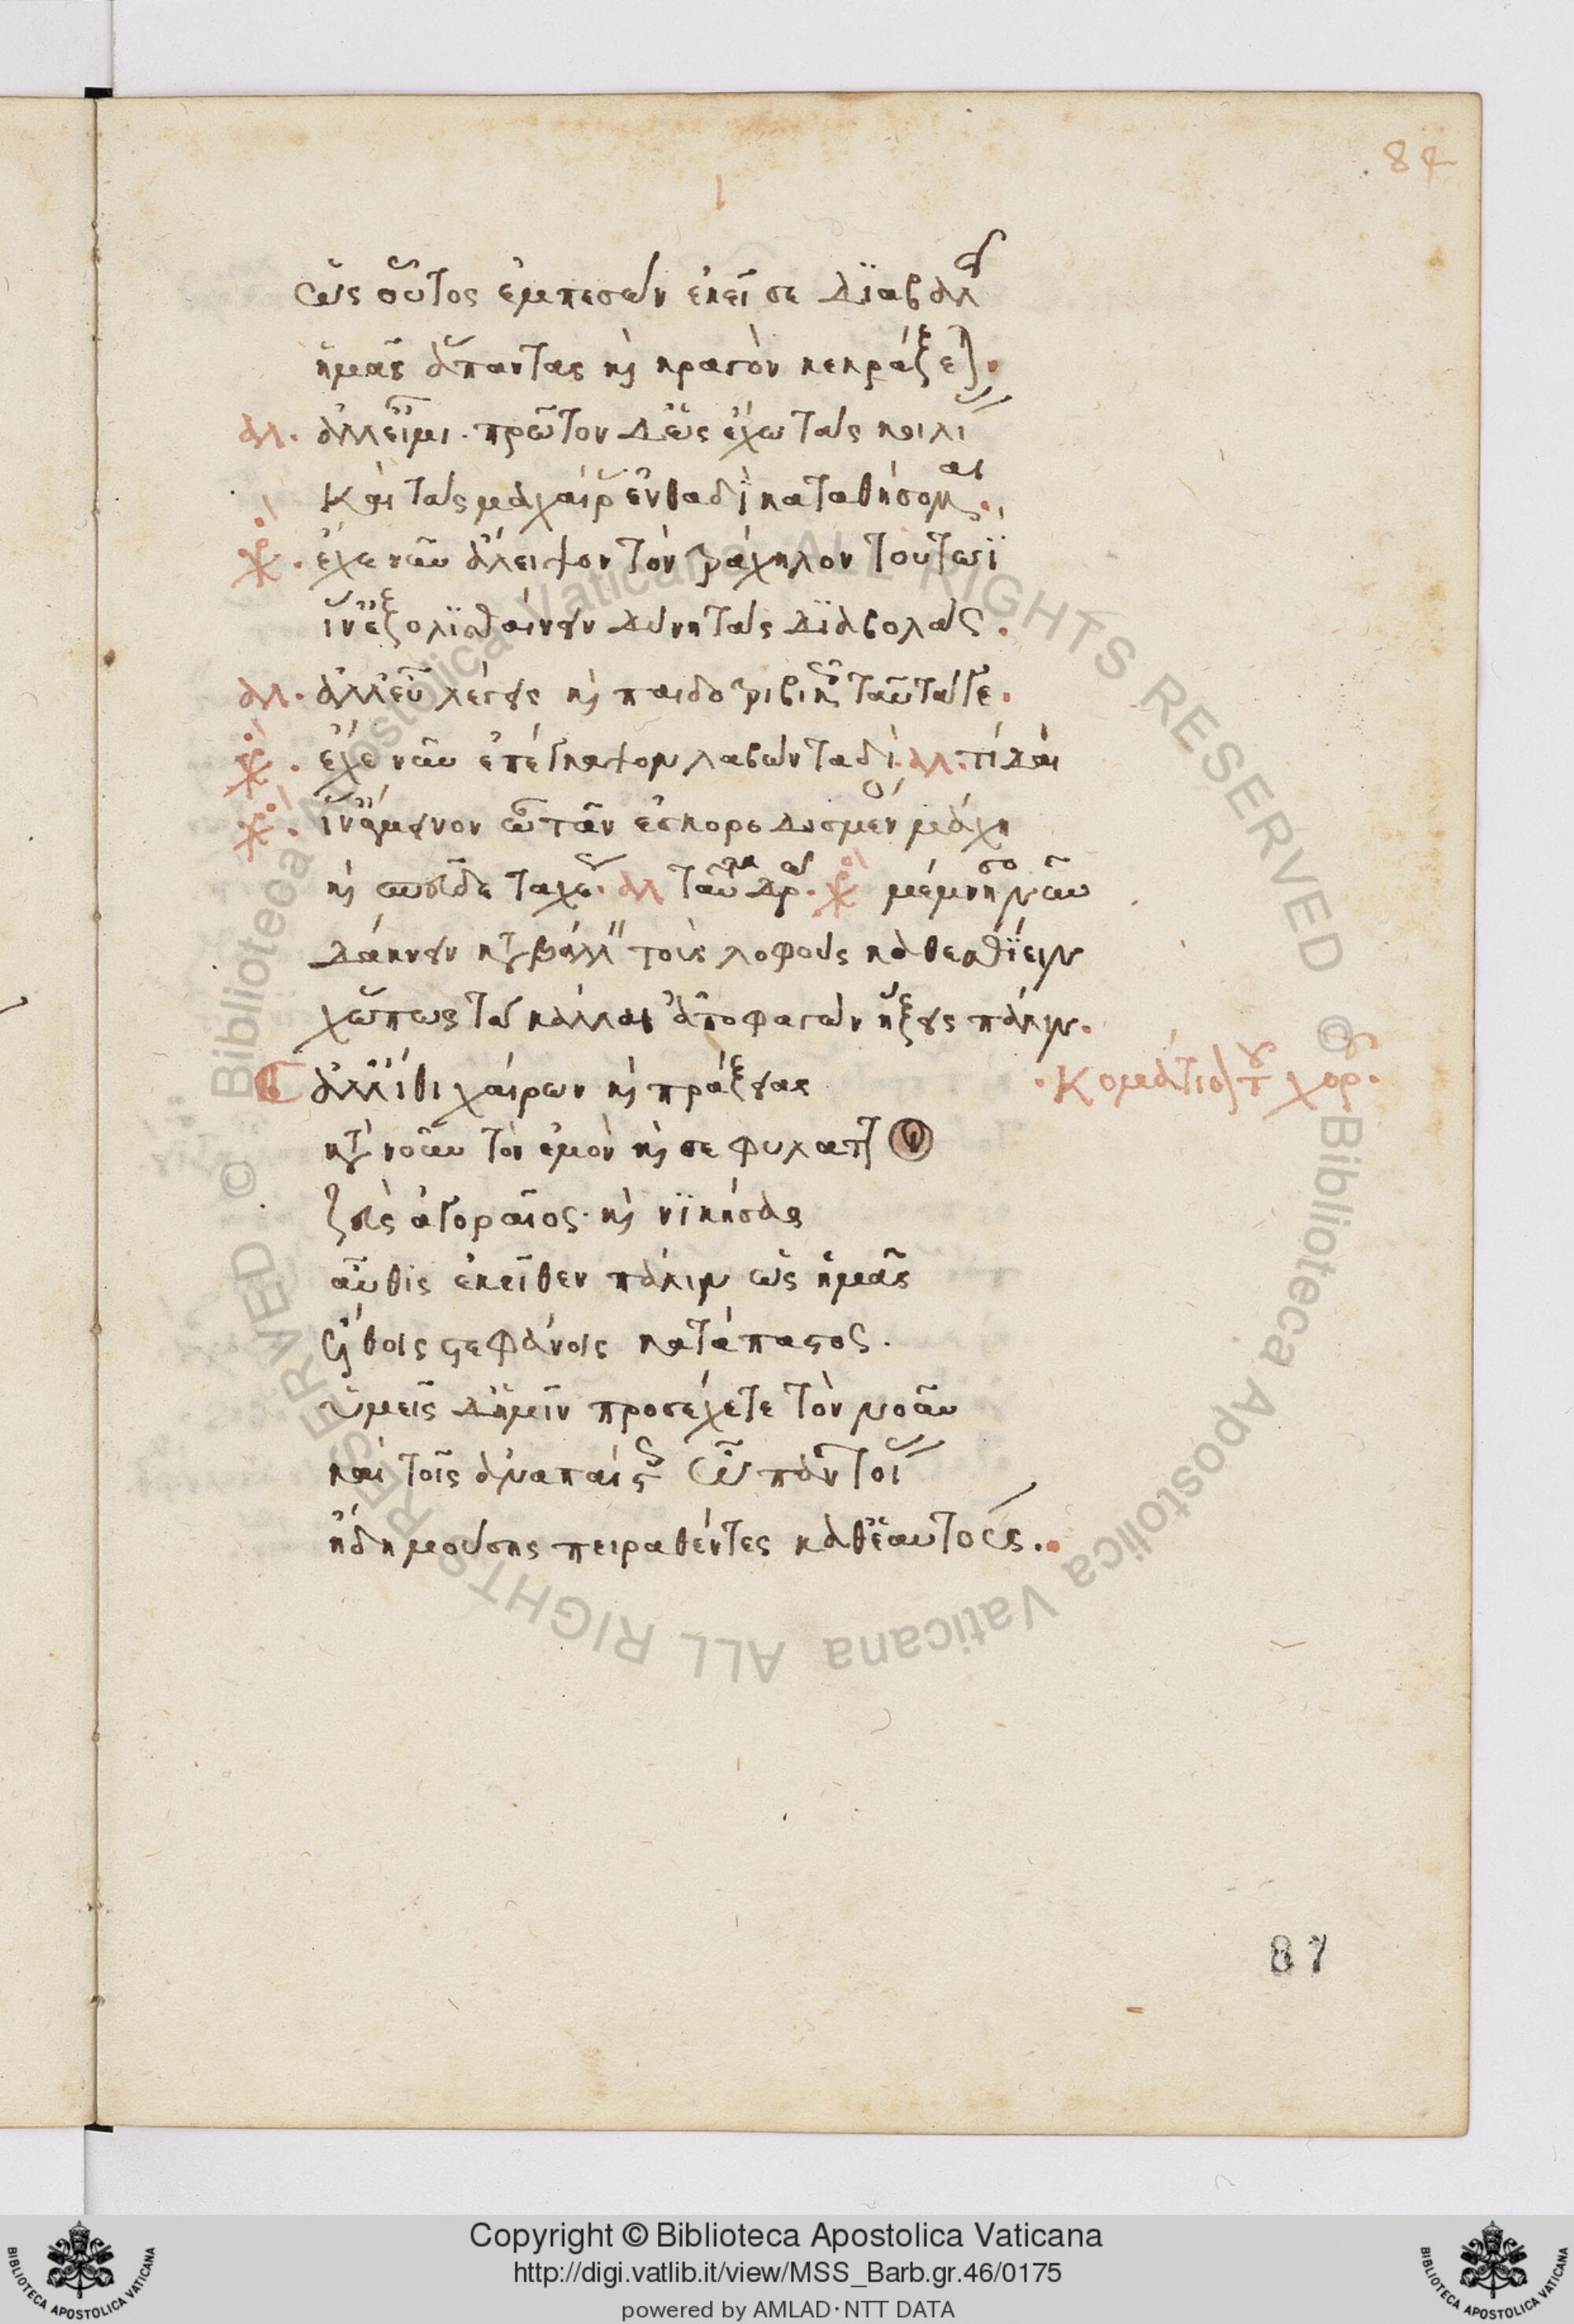 84
ὡς οὗτος ἐμπεσὼν ἐκεῖσε διαβαλεῖ
ἡμᾶς ἅπαντας καὶ κραγὸν κεκράξεται.
ἀλ. ἀλλ' εἶμι. πρῶτον δ' ὡς ἔχω τὰς κοιλίας
καὶ τὰς μαχαίρας ἐνθαδὶ καταθήσομαι.
χορ. ἔχε νῦν ἄλειψον τὸν τράχηλον τουτωΐ
ἵν' ἐξολισθαίνειν δύνῃ τὰς διαβολάς.
ἀλ. ἀλλ' εὖ λέγεις καὶ παιδοτριβικῶς ταῦτά γε.
χορ. ἔχε νῦν ἐπέγκαψον λαβὼν ταδί. ἀλ. τί δαί
χορ. ἵν' ἄμεινον ὦ τᾶν ἐσκοροδισμένος μάχῃ
καὶ σπεῦδε ταχέως. ἀλ. ταῦτα δρῶ. χορ. μέμνησο νῦν
δάκνειν καταβάλλειν τοὺς λόφους κατεσθίειν
χὤπως τὰ κάλλαι' ἀποφαγὼν ἥξεις πάλιν.
ἀλλ' ἴθι χαίρων καὶ πράξειας
κατὰ νοῦν τὸν ἐμὸν καί σε φυλάττοι
ζεὺς ἀγοραῖος. καὶ νικήσας
αὖθις ἐκεῖθεν πάλιν ὡς ἡμᾶς
ἔλθοις στεφάνοις κατάπαστος.
ὑμεῖς δ' ἡμῖν προσέχετε τὸν νοῦν
καὶ τοῖς ἀναπαίστοις ὦ παντοίας
ἤδη μούσης πειραθέντες καθ' ἑαυτούς.
Κομμάτιον τοῦ χοροῦ.
87
© Biblioteca Apostolica Vaticana ALL RIGHTS RESERVED © Biblioteca Apostolica Vaticana ALL RIGHTS RESERVED
Copyright © Biblioteca Apostolica Vaticana
http://digi.vatlib.it/view/MSS_Barb.gr.46/0175
powered by AMLAD·NTT DATA
BIBLIOTECA APOSTOLICA VATICANA
BIBLIOTECA APOSTOLICA VATICANA